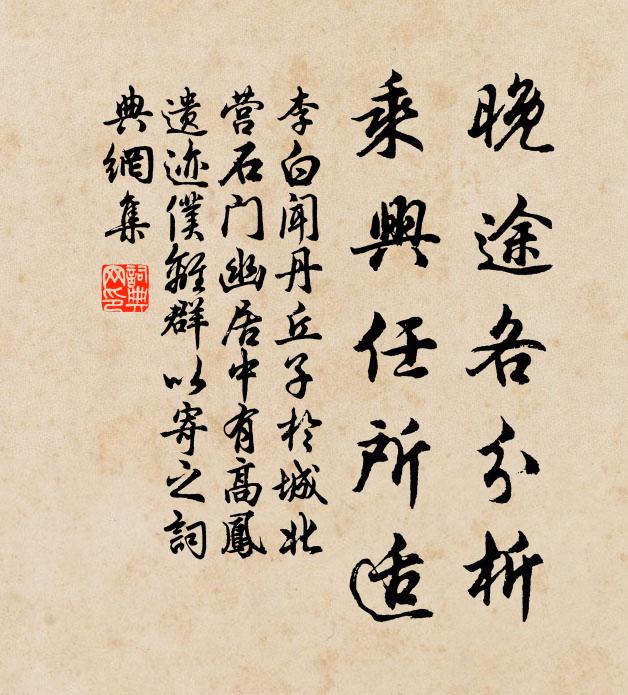 晚途各分析
乘興任所适
李白闻丹丘子於城北
营石门幽居中有高鳳
遗迹僕離群以寄之詞
典網集
詞典网印